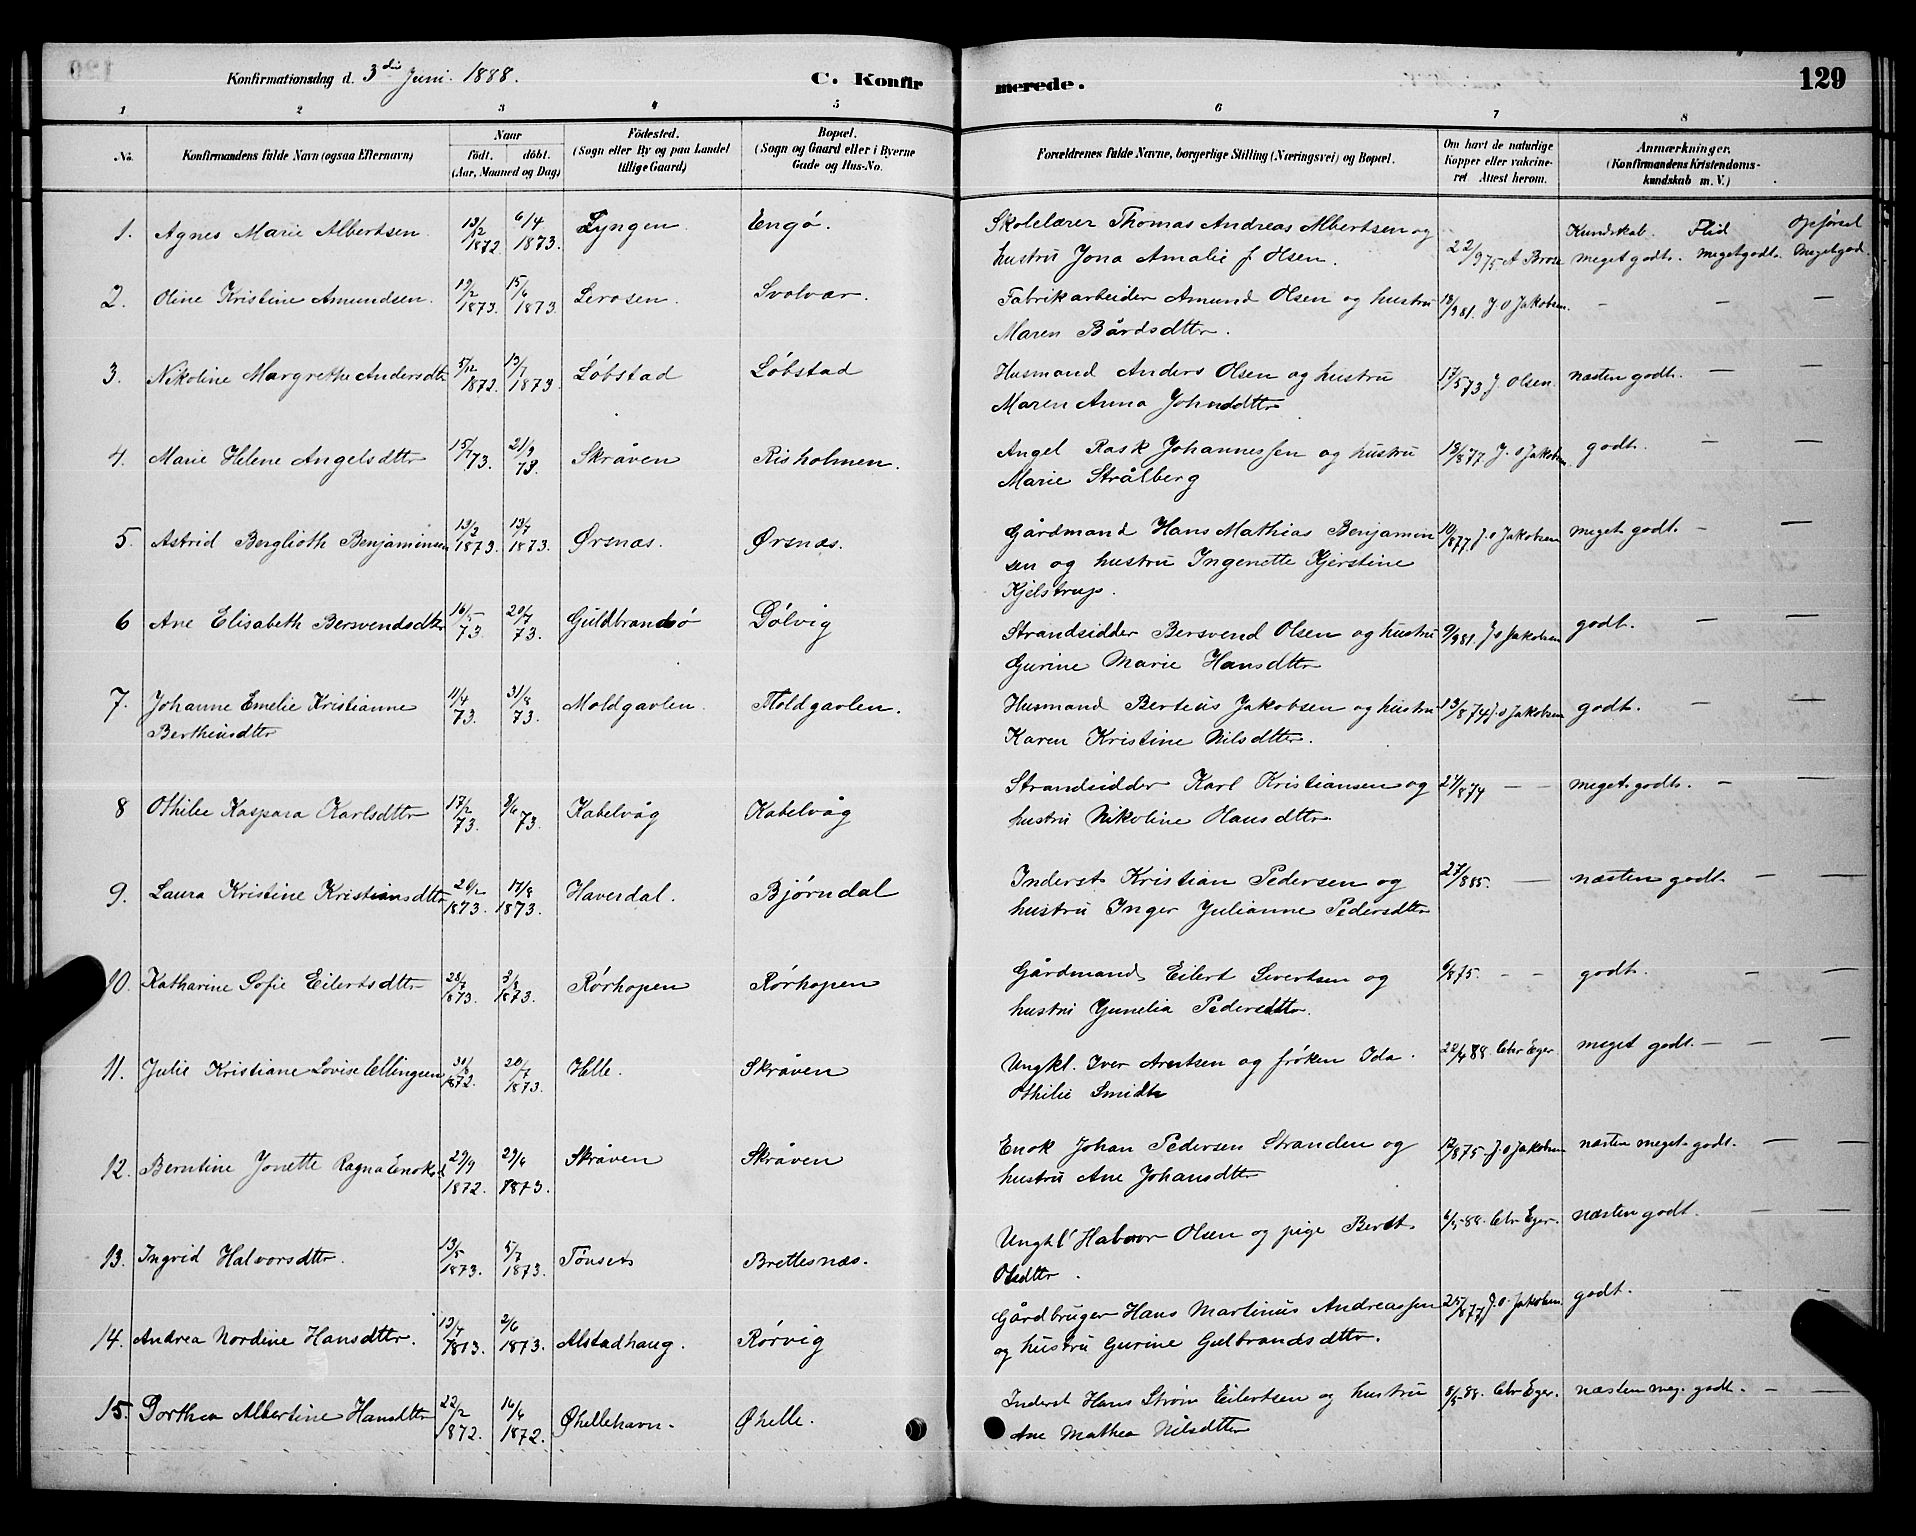 Konfirmationsdag d. 3die Juni 1888.
C. Konfirmerede.
129
1 2 3 4 5 6 7 8
No.
Konfirmandens fulde Navn (ogsaa Efternavn)
Naar
födt. döbt.
(Aar, Maaned og Dag)
Födested.
(Sogn eller By og paa Landet
tillige Gaard)
Bopæl.
(Sogn og Gaard eller i Byerne
Gade og Hus-No.
Forældrenes fulde Navne, borgerlige Stilling (Næringsvei) og Bopæl.
Om havt de naturlige
Kopper eller vakcine-
ret Attest herom.
Anmærkninger.
(Konfirmandens Kristendoms-
kundskab m. V.)
Kundskab. Flid Opførsel
1. Agnes Marie Albertsen. 13/12 1872 6/4 1873. Lyngen. Engø. Skolelærer Thomas Andreas Albertsen og
hustru Jona Amalie f Olsen. 22/9 75 A Brose meget godt. meget godt. Meget god.
2. Oline Kristine Amundsen. 19/2 1873. 15/6 1873. Svolvær. Fabrikarbeider Amund Olsen og hustru 18/9 81. J. O Jakobsen. — — —
Maren Bårdsdttr.
3. Nikoline Margrethe Andersdtr 5/12 1872. 13/7 1873. Løbstad Løbstad Husmand Anders Olsen og hustru 17/5 73 J. Olsen. næsten godt. — —
Maren Anna Johnsdttr
4. Marie Helene Angelsdttr 15/7 73. 21/9 73. Skråven Risholmen. Angel Rask Johannessen og hustru 13/8 77 J. O Jakobsen godt. — —
Marie Strålberg
5. Astrid Berglioth Benjaminsen 13/3 1873. 13/7 1873. Ørsnæs. Ørsnæs. Gårdmand Hans Mathias Benjamin
sen og hustru Ingenette Kjerstine 10/8 77. J. O Jakobsen meget godt. — —
Kjelstrup.
6 Ane Elisabeth Bersvendsdttr 16/5 73. 20/7 73. Guldbrandsø Dølvig Strandsidder Bersvend Olsen og hustru 9/9 81. J O Jakobsen godt. — —
Gurine Marie Hansdttr
7. Johanne Emelie Kristianne 11/4 73. 31/8 73. Moldgavlen. Moldgavlen. Husmand Berteus Jakobsen og hustru 13/8 74 J. O Jakobsen godt. — —
Bertheusdttr Karen Kristine Nilsdttr.
8 Othilie Kaspara Karlsdttr 17/2 73. 9/6 73. Kabelvåg Kabelvåg Strandsidder Karl Kristiansen og 21/8 74 — — meget godt. — —
hustru Nikoline Hansdttr.
9. Laura Kristine Kristiansdttr 1873. 17/8 1873. Haverdal. Bjørndal Inderst Kristian Pedersen og 27/8 85. — næsten godt — —
hustru Inger Julianne Pedersdttr
10. Katharine Sofie Eilertsdttr 28/7 1873. 3/8 1873. Rørhopen Rørhopen Gårdmand Eilert Sivertsen og 6/8 75. — — godt. — —
hustru Gunelia Pedersdttr.
11. Julie Kristiane Lovise Ellingsen 31/8 1872. 20/7 1873. Helle. Skråven Ungkl. Iver Arntsen og frøken Ida 22/4 88. Chr Eger. meget godt. — — —
Othilie Smidth
12. Berntine Jonette Ragna Enoksd 29/9 1872. 29/6 1873. Skråven Skråven Enok Johan Pedersen Stranden og 12/8 75 J. O Jakobsen næsten meget godt. — —
hustru Ane Johansdttr
13. Ingrid Halvorsdttr. 13/5 1873. 5/7 1873. Tønset Brettesnæs. Ungkl Halvor Olsen og pige Berit 6/5 88. Chr Eger. næsten godt. — —
Olsdttr.
14. Andrea Nordine Hansdttr. 13/4 1873. 2/6 1873. Alstadhaug. Rørvig Gårdbruger Hans Martinus Andreassen 25/8 77 J. O. Jakobsen godt. — —
og hustru Gurine Gulbrandsdttr.
15. Dorthea Albertine Hansdttr 22/2 1872. 16/6 1872. Øhellehavn. Øhelle. Inderst Hans Strøm Eilertsen og hustru 8/5 88. Chr Eger. næsten meg. godt. — —
Ane Mathea Nilsdttr